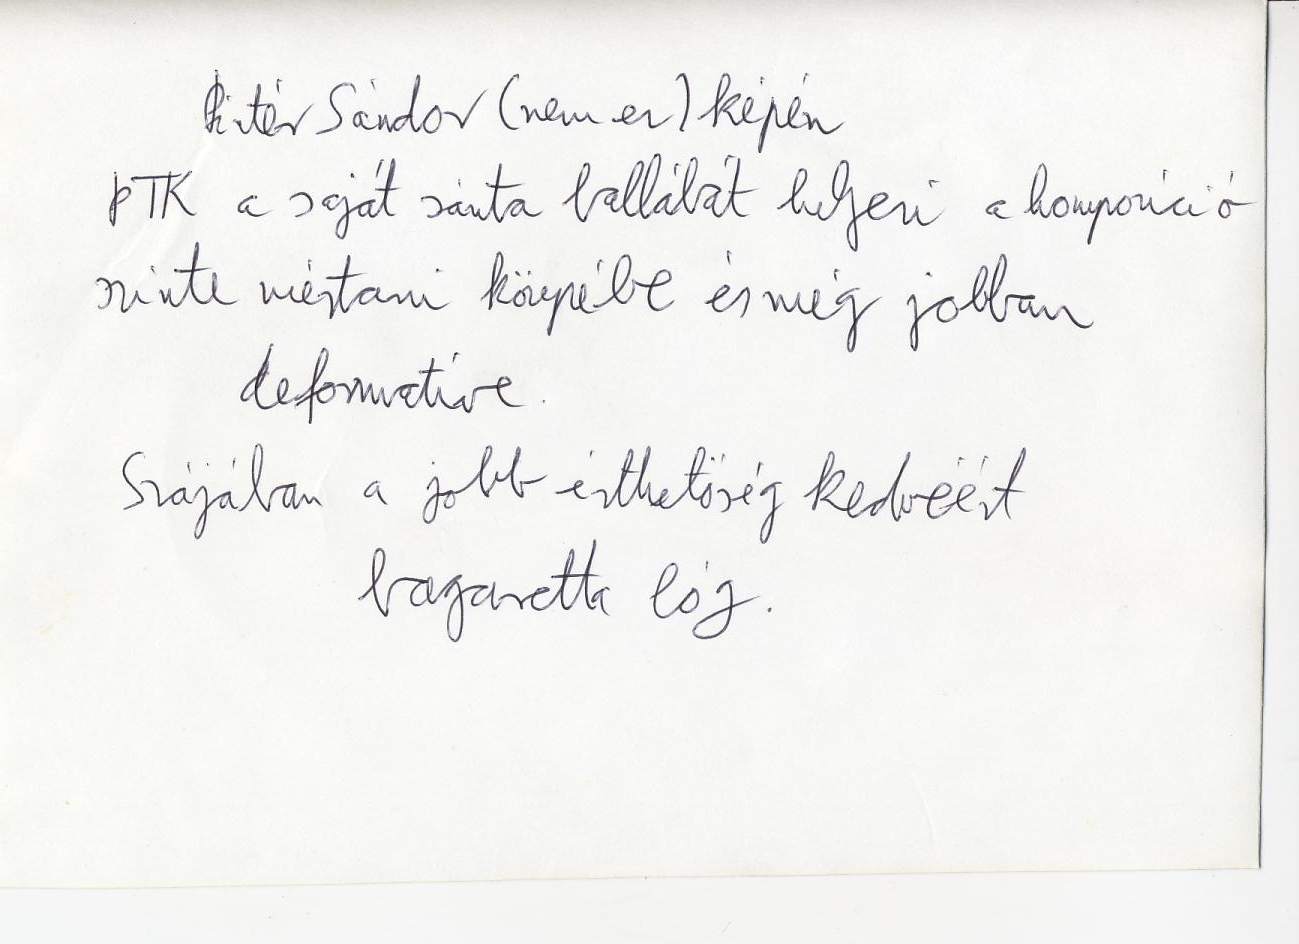 Pintér Sándor (nem er) képén
PTK a saját sánta ballábát helyezi a kompozició
szinte mértani közepébe és még jobban
deformative.
Szájában a jobb érthetőség kedvéért
bagaretta lóg.